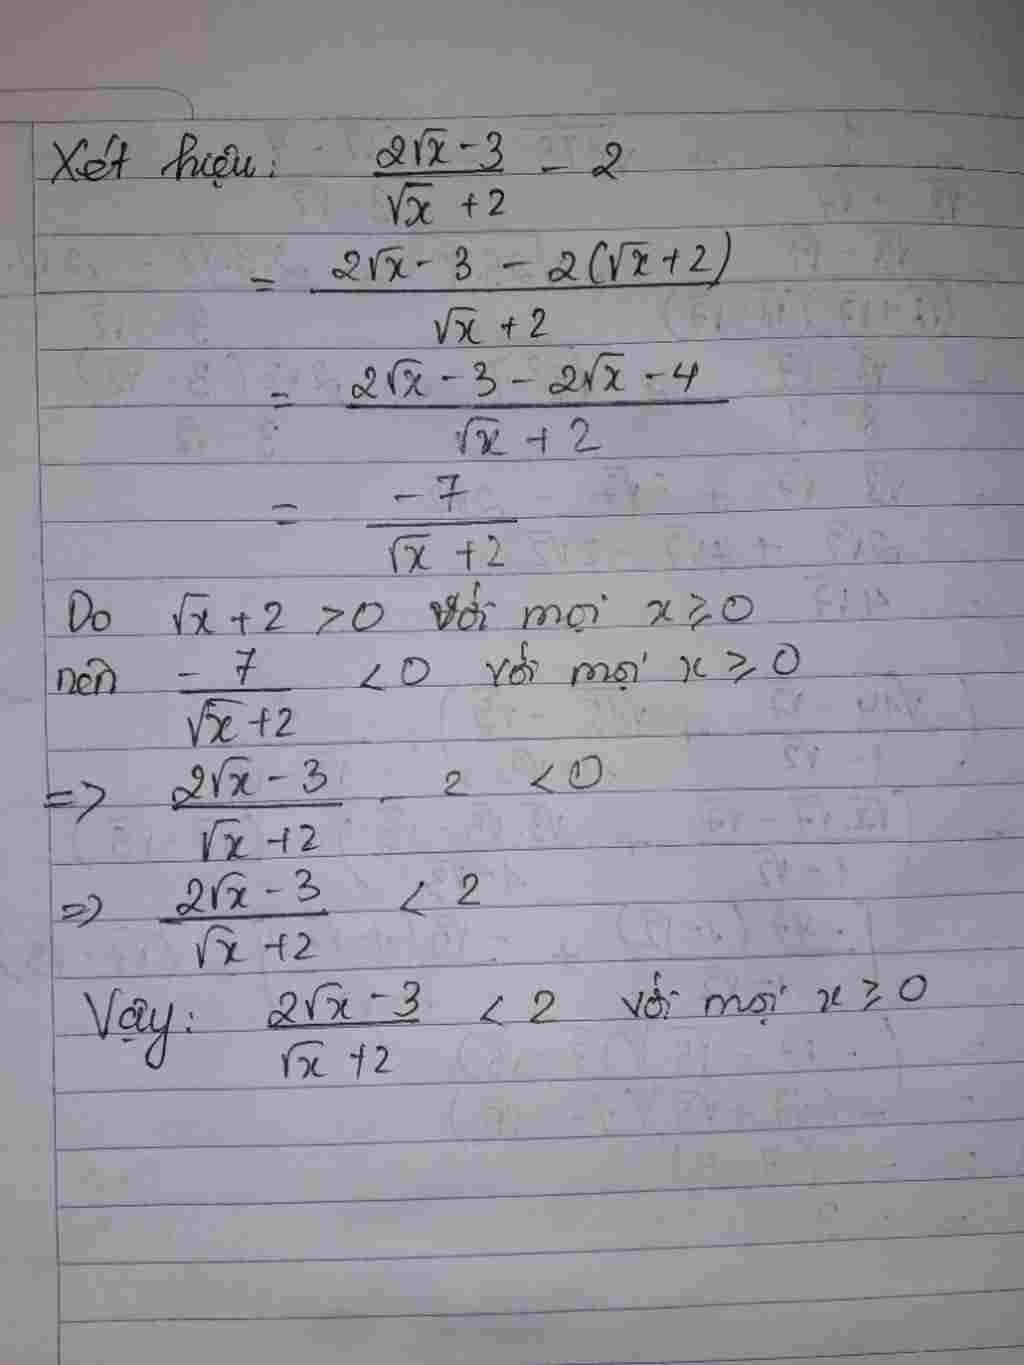 Xét hiệu: \frac{2\sqrt{x} - 3}{\sqrt{x} + 2} - 2
= \frac{2\sqrt{x} - 3 - 2(\sqrt{x} + 2)}{\sqrt{x} + 2}
= \frac{2\sqrt{x} - 3 - 2\sqrt{x} - 4}{\sqrt{x} + 2}
= \frac{-7}{\sqrt{x} + 2}
Do \sqrt{x} + 2 > 0 với mọi x ≥ 0
nên \frac{-7}{\sqrt{x} + 2} < 0 với mọi x ≥ 0
=> \frac{2\sqrt{x} - 3}{\sqrt{x} + 2} - 2 < 0
=> \frac{2\sqrt{x} - 3}{\sqrt{x} + 2} < 2
Vậy: \frac{2\sqrt{x} - 3}{\sqrt{x} + 2} < 2 với mọi x ≥ 0